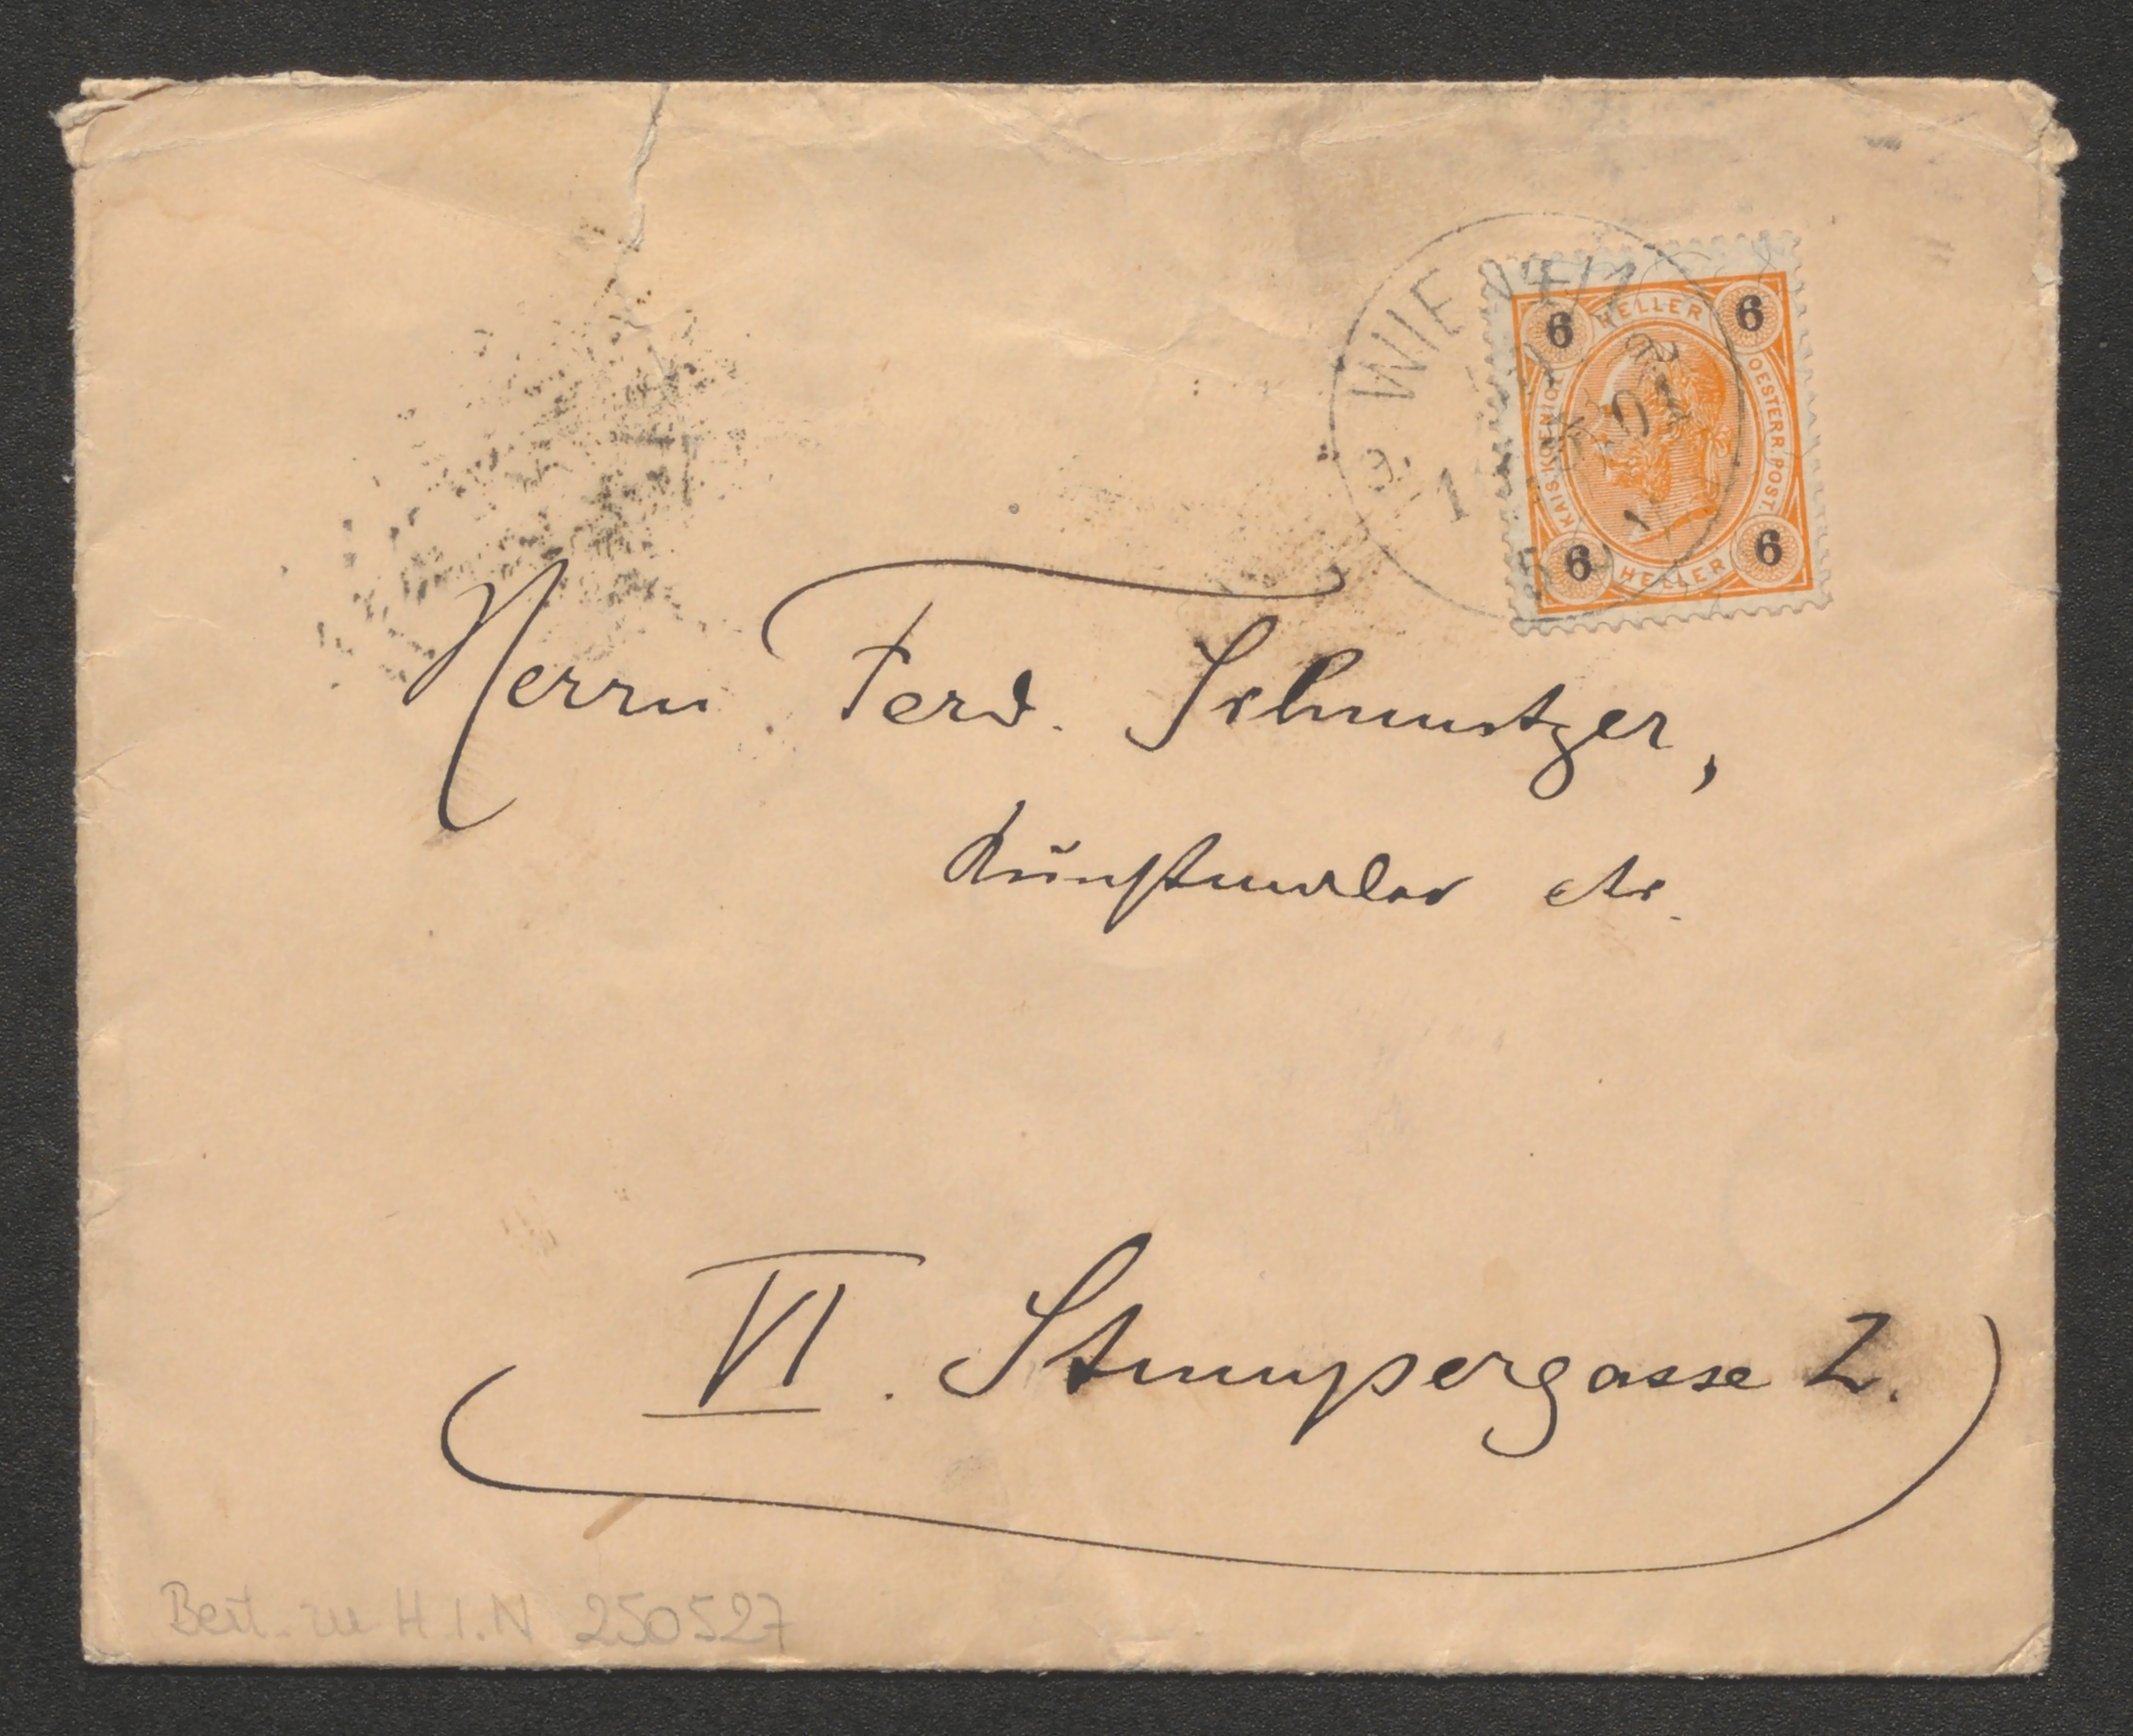 WIEN
6 HELLER 6
KAIS. KOENIGL. OESTERR. POST.
6 HELLER 6
Herrn Ferd. Schmutzer,
Kunstmaler etc.
VI. Stumpergasse 2.
Beil. zu H.I.N 250527